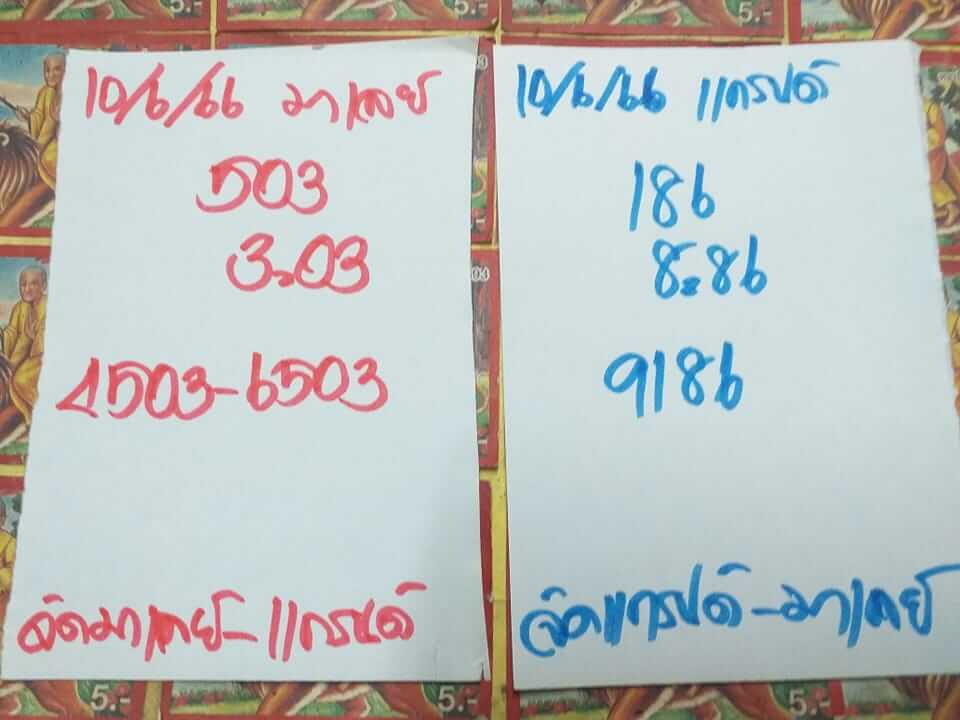 10/6/66 มาเลย์
503
3=03
4503-6503
จัดมาเลย์-แกรนด์
10/6/66 แกรนด์
186
8=86
9186
จัดแกรนด์-มาเลย์
5.-
5.-
5.-
5.-
5.-